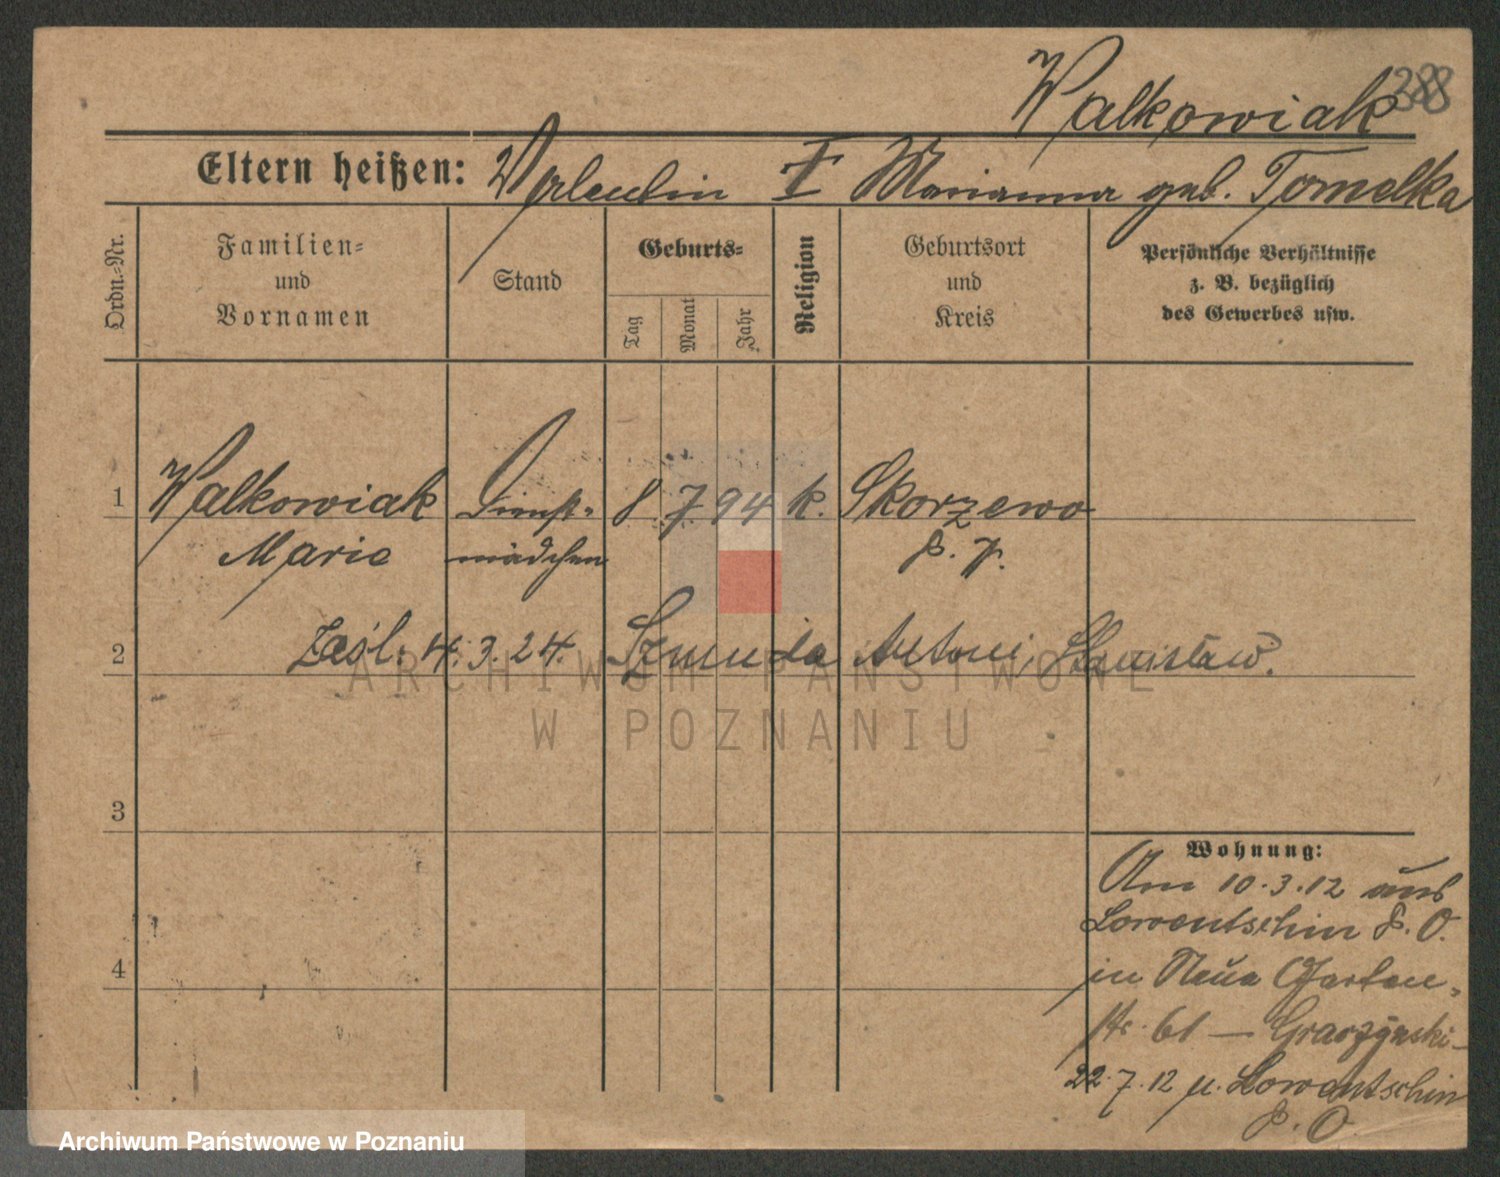 Walkowiak 388
Eltern heißen: Valentin † Marianna geb. Tomelka
Ordn.-Nr.
Familien-
und
Vornamen
Stand
Geburts-
Tag
Monat
Jahr
Religion
Geburtsort
und
Kreis
Persönliche Verhältnisse
z. B. bezüglich
des Gewerbes usw.
1 Walkowiak Dienst- 8 7 94 k. Skorzewo
Marie mädchen P.
2 Zaśl. 4. 3. 24. Szmuda Antoni, Stanisław.
ARCHIWUM PAŃSTWOWE
W POZNANIU
3
Wohnung:
Am 10.3.12 aus
Lowentschin P. O.
4
in Neue Garten-
str. 61 — Grarzynski —
22.7.12 n. Lowentschin
P. O.
Archiwum Państwowe w Poznaniu